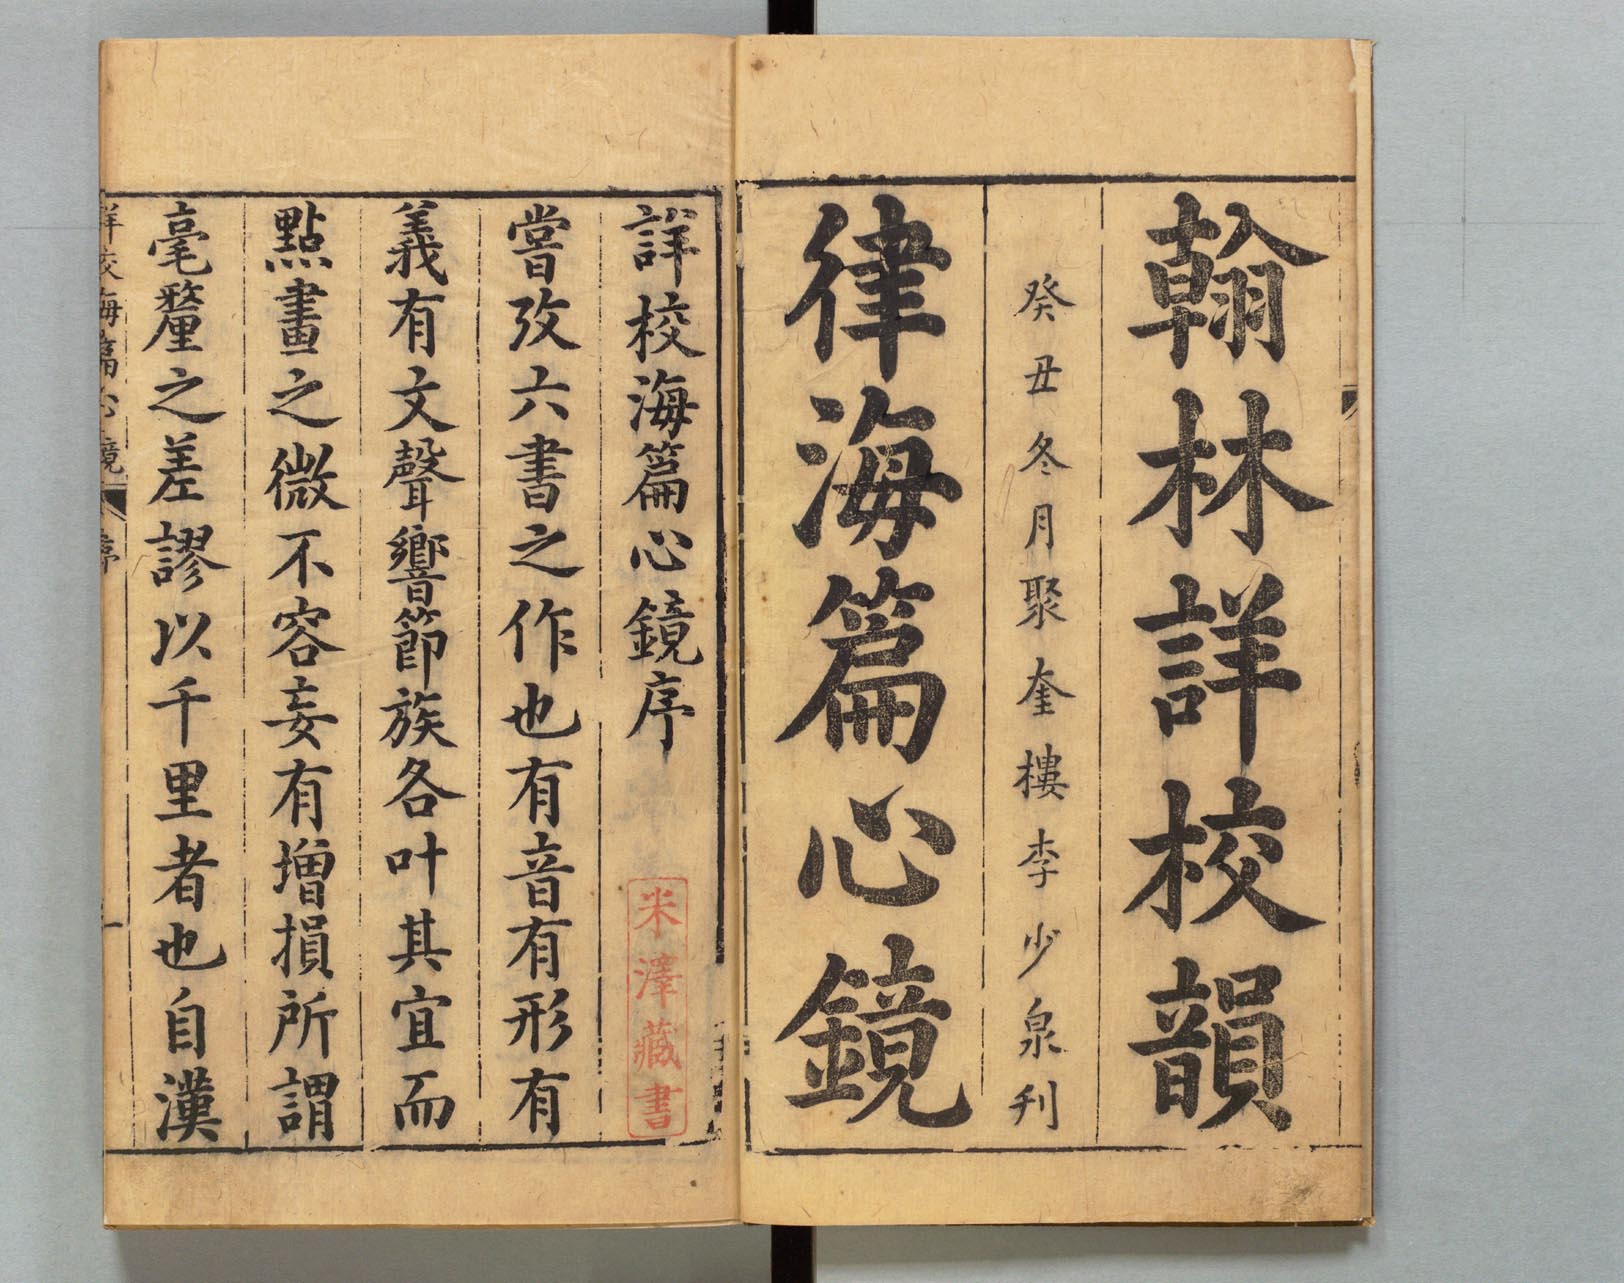 翰林詳校韻
癸丑冬月聚奎樓李少泉刋
律海篇心鏡
詳校海篇心鏡序
米澤藏書
嘗攷六書之作也有音有形有
義有文聲響節族各叶其宜而
點畫之微不容妄有增損所謂
毫釐之差謬以千里者也自漢
詳校海篇心鏡 序 一